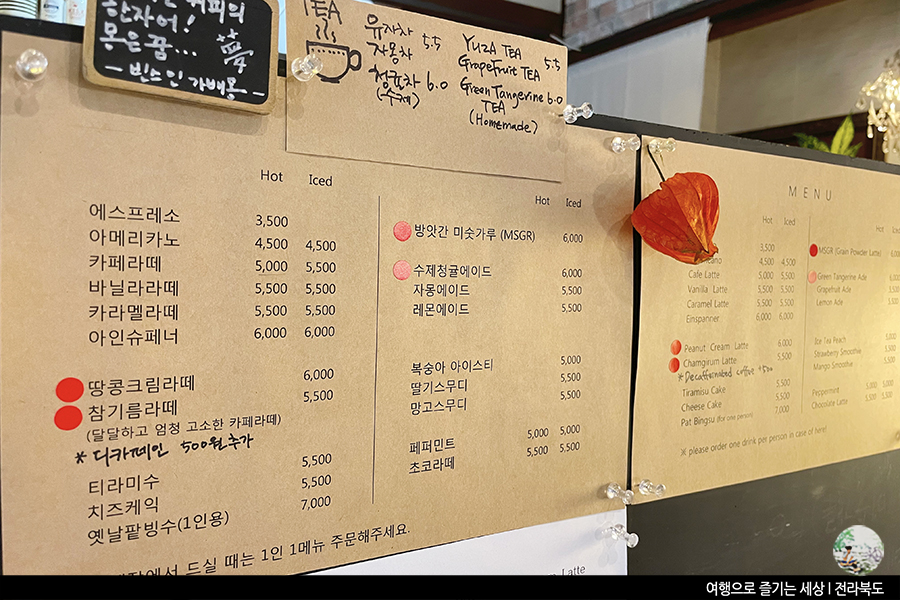 한자어!
몽은꿈...
TEA
유자차 5.5
자몽차
청귤차 6.0
(수제)
YUZA TEA 5.5
GrapeFruit TEA
Green Tangerine 6.0
TEA
(Homemade)
Hot Iced
에스프레소 3,500
아메리카노 4,500 4,500
카페라떼 5,000 5,500
바닐라라떼 5,500 5,500
카라멜라떼 5,500 5,500
아인슈페너 6,000 6,000
땅콩크림라떼 6,000
참기름라떼 5,500
(달달하고 엄청 고소한 카페라떼)
* 디카페인 500원 추가
티라미수 5,500
치즈케익 5,500
옛날팥빙수(1인용) 7,000
Hot Iced
방앗간 미숫가루 (MSGR) 6,000
수제청귤에이드 6,000
자몽에이드 5,500
레몬에이드 5,500
복숭아 아이스티 5,000
딸기스무디 5,500
망고스무디 5,500
페퍼민트 5,000 5,000
초코라떼 5,500 5,500
에서 드실 때는 1인 1메뉴 주문해주세요.
Latte
MENU
Hot Iced
3,500
4,500 4,500
Cafe Latte 5,000 5,500
Vanilla Latte 5,500 5,500
Caramel Latte 5,500 5,500
Einspanner 6,000 6,000
Peanut Cream Latte 6,000
Chamgirum Latte 5,500
* Decaffeinated coffee +500
Tiramisu Cake 5,500
Cheese Cake 5,500
Pat Bingsu (for one person) 7,000
Hot
MSGR (Grain Powder Latte)
Green Tangerine Ade
Grapefruit Ade
Lemon Ade
Ice Tea Peach 5,000
Strawberry Smoothie 5,500
Mango Smoothie 5,500
Peppermint 5,000 5,000
Chocolate Latte 5,500 5,500
※ please order one drink per person in case of here!
여행으로 즐기는 세상 | 전라북도